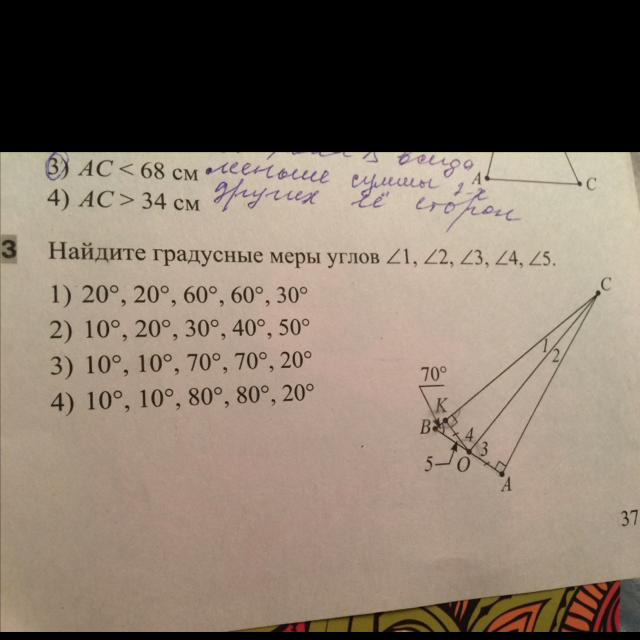 всегда
3) AC < 68 см меньше суммы 2-х
4) AC > 34 см других её сторон
A C
3 Найдите градусные меры углов ∠1, ∠2, ∠3, ∠4, ∠5.
1) 20°, 20°, 60°, 60°, 30°
2) 10°, 20°, 30°, 40°, 50°
3) 10°, 10°, 70°, 70°, 20°
4) 10°, 10°, 80°, 80°, 20°
C
1
2
70°
K
B
4
3
5
O
A
37